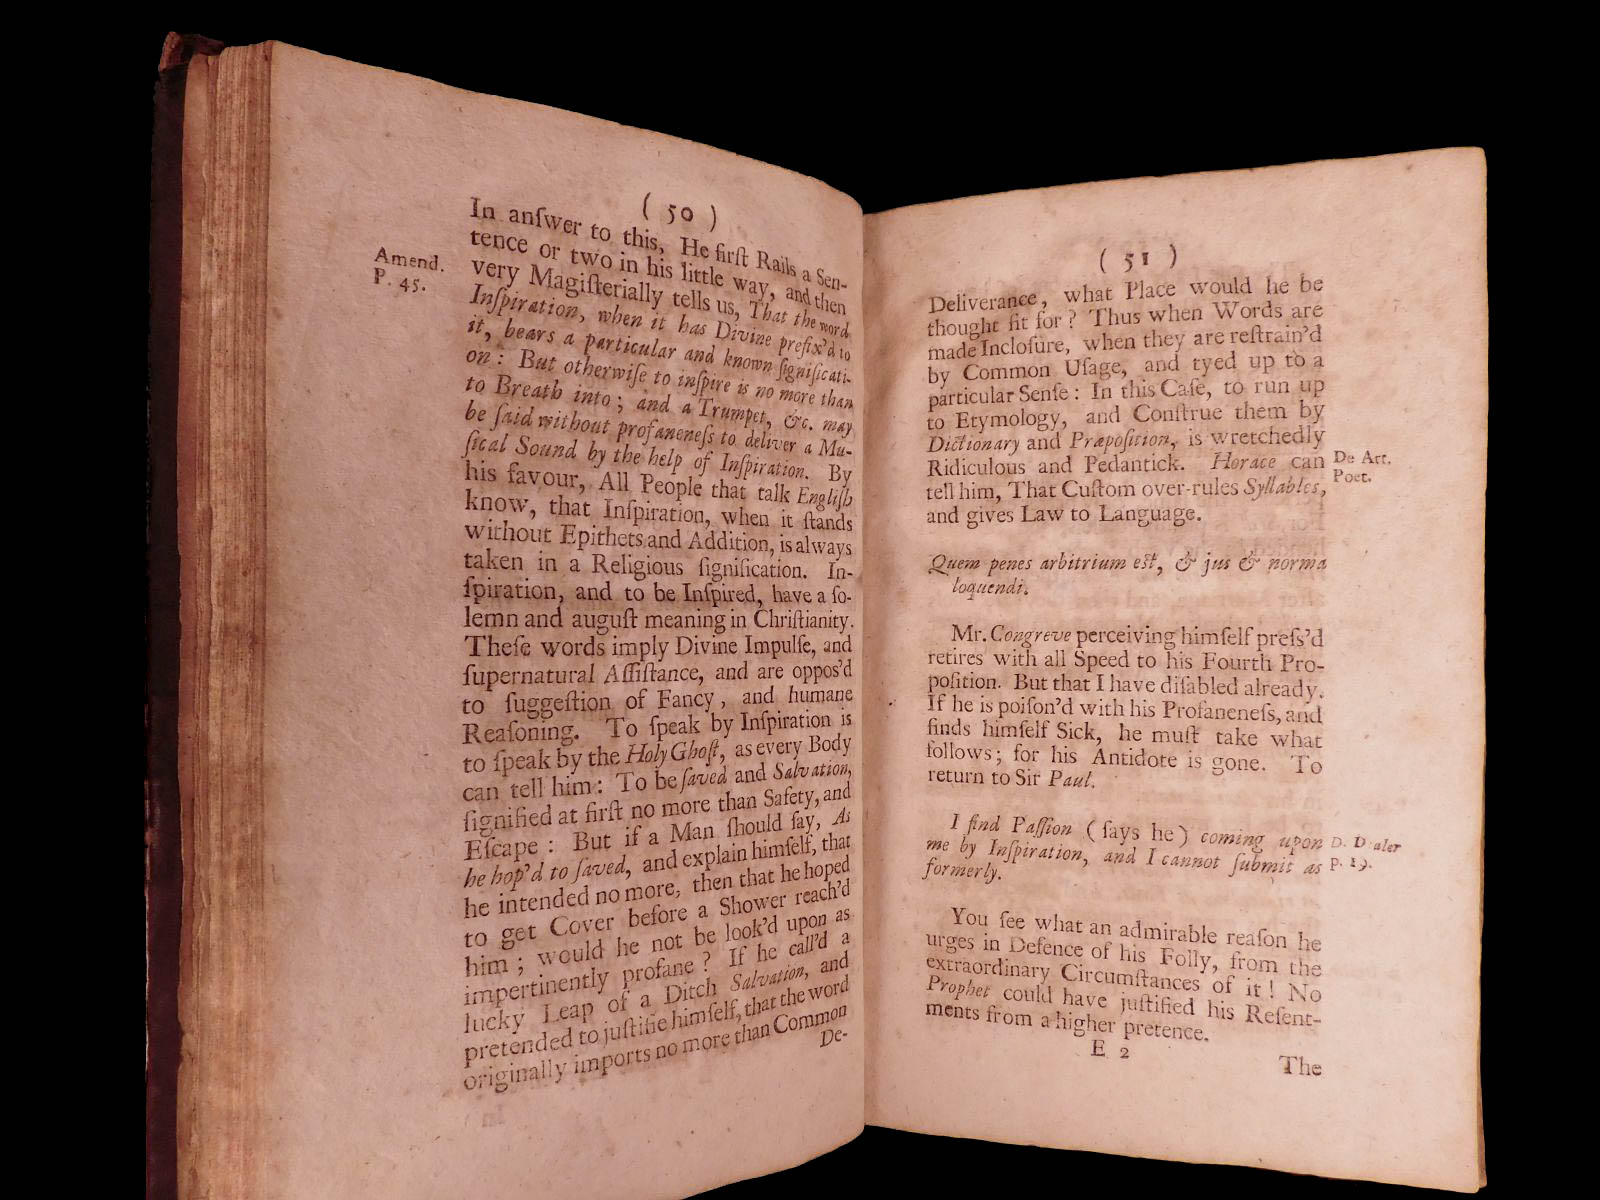 ( 50 )
In anſwer to this, He firſt Rails a Sen-
tence or two in his little way, and then
very Magiſterially tells us, That the word
Amend.
P. 45.
Inſpiration, when it has Divine prefix'd to
it, bears a particular and known ſignificati-
on: But otherwiſe to inſpire is no more than
to Breath into; and a Trumpet, &c. may
be ſaid without profaneneſs to deliver a Mu-
ſical Sound by the help of Inſpiration. By
his favour, All People that talk Engliſh
know, that Inſpiration, when it ſtands
without Epithets and Addition, is always
taken in a Religious ſignification. In-
ſpiration, and to be Inſpired, have a ſo-
lemn and auguſt meaning in Chriſtianity.
Theſe words imply Divine Impulſe, and
ſupernatural Aſſiſtance, and are oppos'd
to ſuggeſtion of Fancy, and humane
Reaſoning. To ſpeak by Inſpiration is
to ſpeak by the Holy Ghoſt, as every Body
can tell him: To be ſaved and Salvation,
ſignified at firſt no more than Safety, and
Eſcape: But if a Man ſhould ſay, As
he hop'd to ſaved, and explain himſelf, that
he intended no more, then that he hoped
to get Cover before a Shower reach'd
him; would he not be look'd upon as
impertinently profane? If he call'd a
lucky Leap of a Ditch Salvation, and
pretended to juſtifie himſelf, that the word
originally imports no more than Common
De-
( 51 )
Deliverance, what Place would he be
thought fit for? Thus when Words are
made Incloſure, when they are reſtrain'd
by Common Uſage, and tyed up to a
particular Senſe: In this Caſe, to run up
to Etymology, and Conſtrue them by
Dictionary and Præpoſition, is wretchedly
Ridiculous and Pedantick. Horace can
De Art.
Poet.
tell him, That Cuſtom over-rules Syllables,
and gives Law to Language.
Quem penes arbitrium eſt, & jus & norma
loquendi.
Mr. Congreve perceiving himſelf preſs'd
retires with all Speed to his Fourth Pro-
poſition. But that I have diſabled already.
If he is poiſon'd with his Profaneneſs, and
finds himſelf Sick, he muſt take what
follows; for his Antidote is gone. To
return to Sir Paul.
I find Paſſion (ſays he) coming upon
me by Inſpiration, and I cannot ſubmit as
formerly.
D. Dealer
p. 19.
You ſee what an admirable reaſon he
urges in Defence of his Folly, from the
extraordinary Circumſtances of it! No
Prophet could have juſtified his Reſent-
ments from a higher pretence.
E 2
The